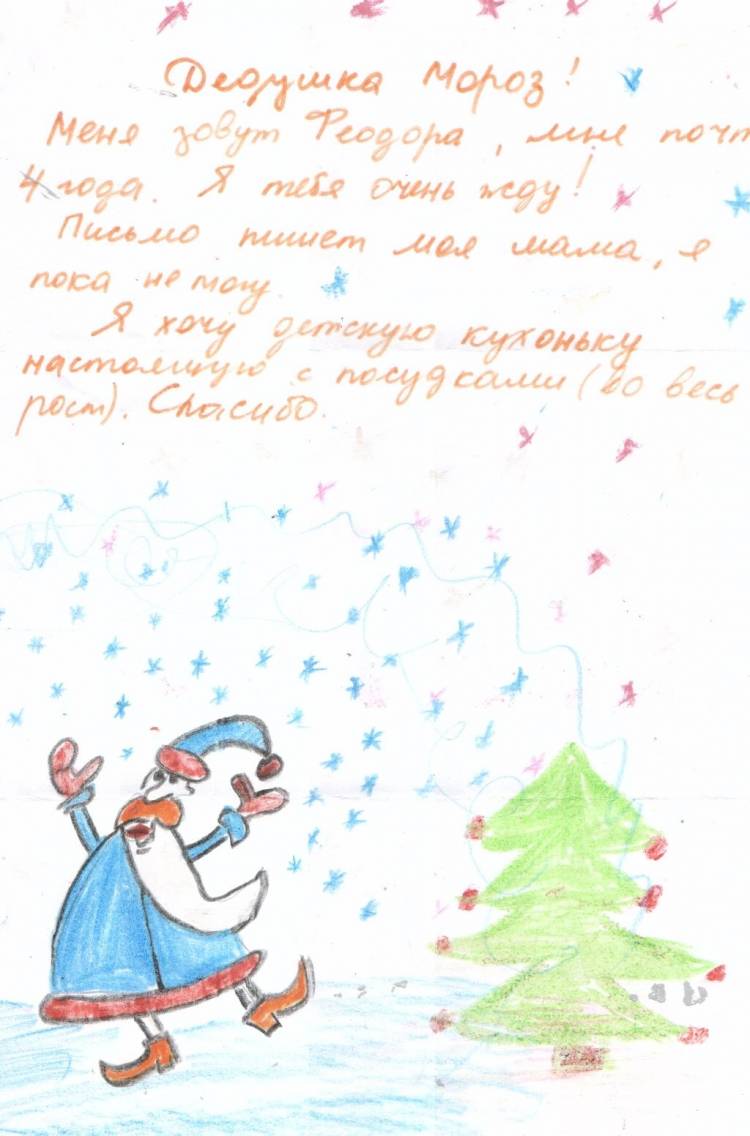 Дедушка Мороз!
Меня зовут Феодора, мне почт
4 года. Я тебя очень жду!
Письмо пишет моя мама, я
пока не могу.
Я хочу детскую кухоньку
настоящую с посудками (во весь
рост). Спасибо.